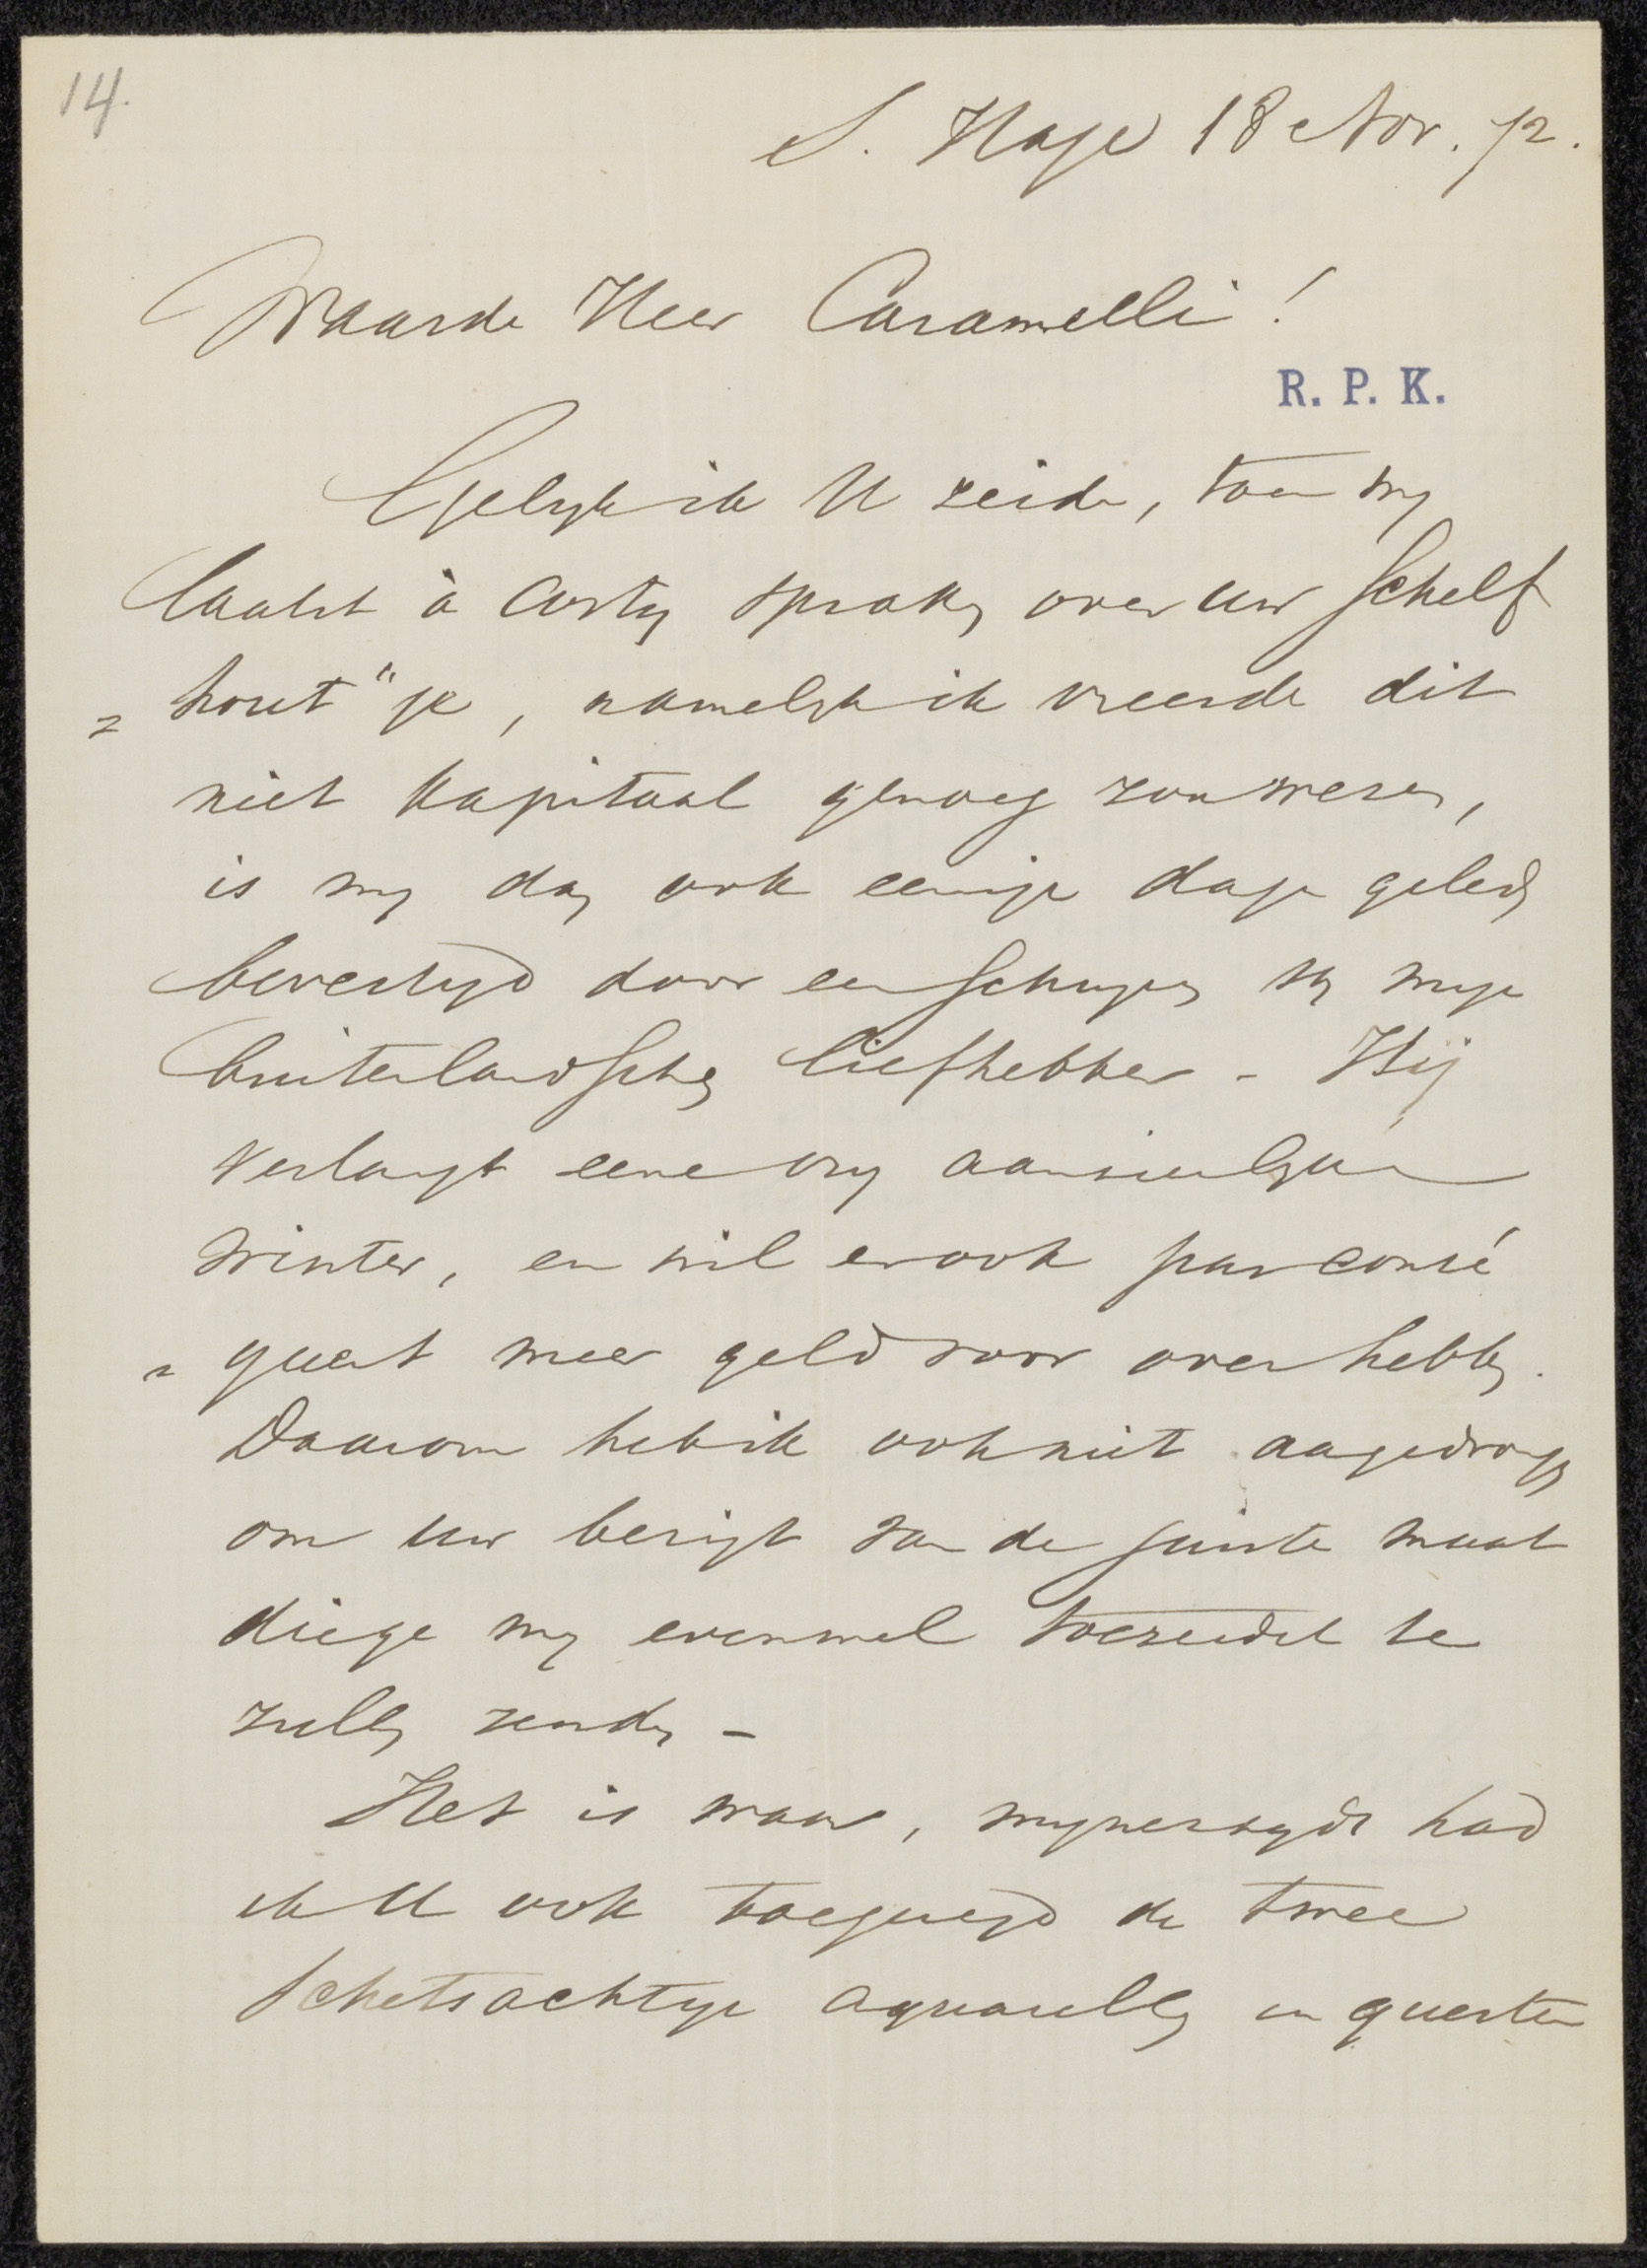 14.
S. Hage 18 Nov. 72.
Waarde Heer Caramelli!
R. P. K.
Gelyk ik U zeide, toen wy
laatst à Costy spraken over uw Schelf
= hout"je, namelyk ik vreesde dit
niet kapitaal genoeg zou wezen,
is my dan ook eenige dage geleden
bevestigd door een schryven myn
buitenlandschen liefhebber - Hij
verlangt eene vry aanzienlyken
winter, en wil er ook par consé
= quent meer geld voor over hebben.
Daarom heb ik ook niet aagedrongen
om uw berigt van de juiste maat
die ge my evenwel toezeidet te
zullen zenden -
Het is waar, mynerzyds had
ik U ook toegezegd de twee
schetsachtige aquarellen in questie